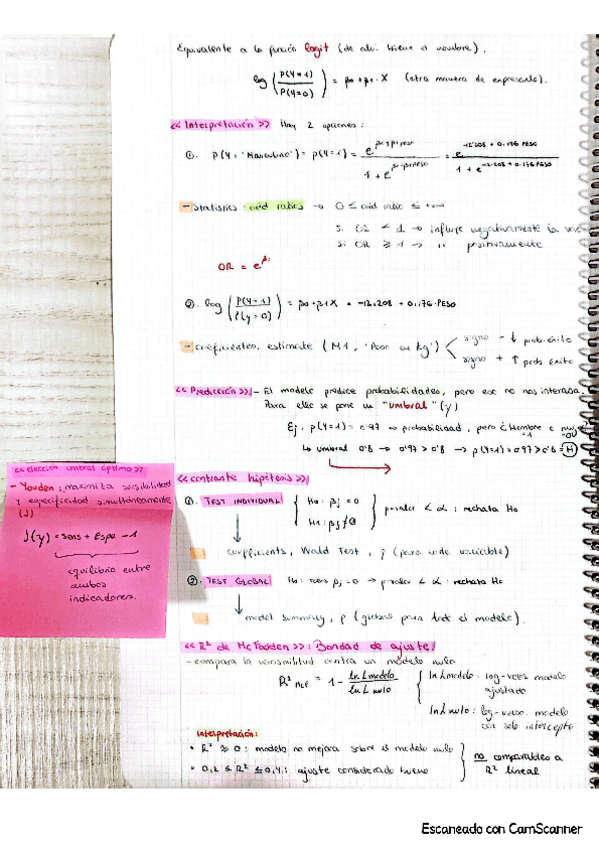 Equivalente a la función logit (de ahí viene el nombre).
log (P(Y=1) / P(Y=0)) = β0 + β1 · X (otra manera de expresarlo).
<< Interpretación >> Hay 2 opciones:
①. P(Y = 'Masculino') = P(Y=1) = e^(β0+β1·PESO) / 1 + e^(β0+β1·PESO) = e^(-12.208 + 0.176 PESO) / 1 + e^(-12.208 + 0.176 PESO)
- Statistics: odd ratios → 0 ≤ odd ratio ≤ +∞
si OR < 1 → influye negativamente la
si OR ≥ 1 → " positivamente
OR = e^βi
②. log (P(Y=1) / P(Y=0)) = β0 + β1X = -12.208 + 0.176·PESO
- coeficientes, estimate (M1, 'Peor en Kg')
signo - ↓ prob. éxito
signo + ↑ prob éxito
<< Predicción >> - El modelo predice probabilidades, pero eso no nos interesa.
Para ello se pone un "umbral" (y)
Ej. P(Y=1) = 0.97 → probabilidad, pero ¿Hombre o
↳ umbral 0'8 → 0'97 > 0'8 → P(Y=1) = 0.97 > 0'8 = H
<< elección umbral óptimo >>
- Youden: maximiza sensibilidad
y especificidad simultáneamente
(J)
J(y) = sens + Espe - 1
equilibrio entre
ambos
indicadores.
<< contraste hipótesis >>
①. TEST INDIVIDUAL { H0: βj = 0
H1: βj ≠ 0 } p valor < α : rechata H0
coefficients, Wald Test, p (para cada variable)
②. TEST GLOBAL H0: todos βj = 0 → p valor < α : rechata H0
model summary, p (global para todo el modelo).
<< R² de McFadden >>: Bondad de ajuste!
- compara la verosimilitud contra un modelo nulo
R² McF = 1 - ln L modelo / ln L nulo
ln L modelo: log-veros modelo
ajustado
ln L nulo: log-veros. modelo
con solo intercepto
Interpretación:
• R² ≈ 0: modelo no mejora sobre el modelo nulo
• 0,2 ≤ R² ≤ 0,4: ajuste considerado bueno
no comparables a
R² lineal
Escaneado con CamScanner